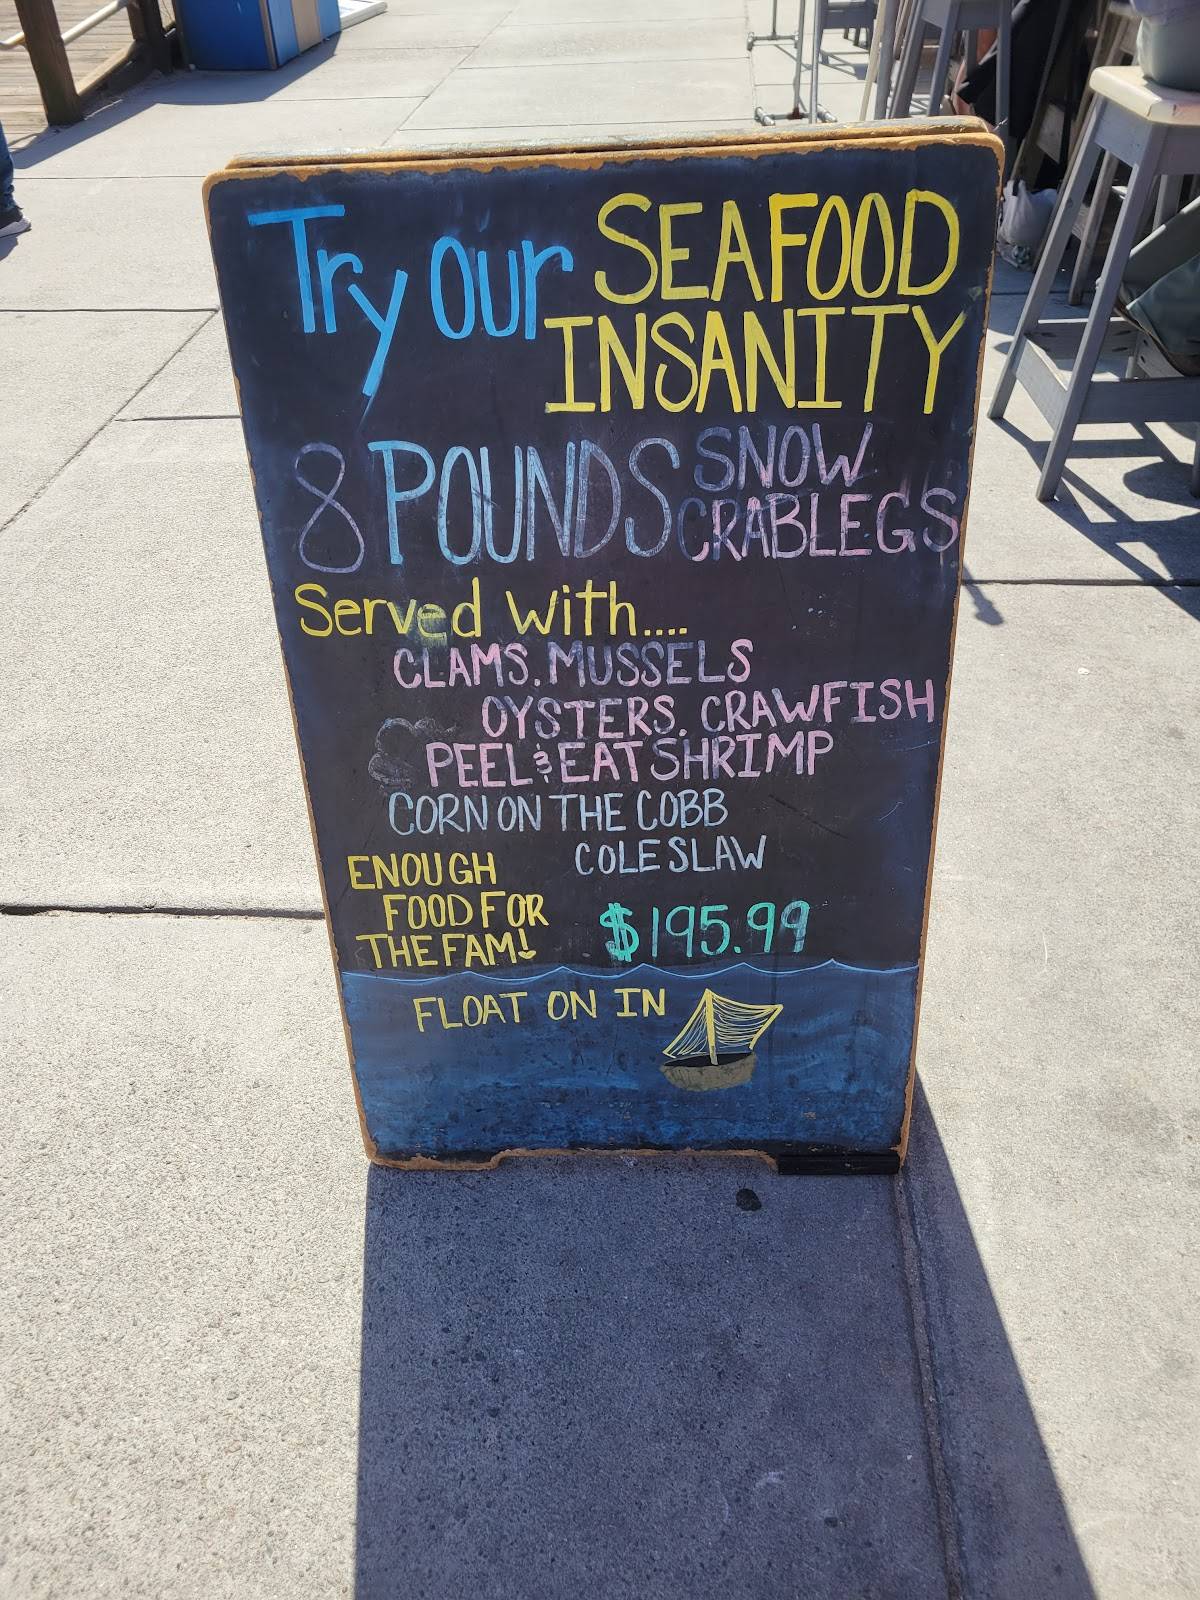 Try our SEAFOOD
INSANITY
8 POUNDS SNOW
CRABLEGS
Served with....
CLAMS. MUSSELS
OYSTERS. CRAWFISH
PEEL & EAT SHRIMP
CORN ON THE COBB
COLESLAW
ENOUGH
FOOD FOR
THE FAM!
$195.99
FLOAT ON IN